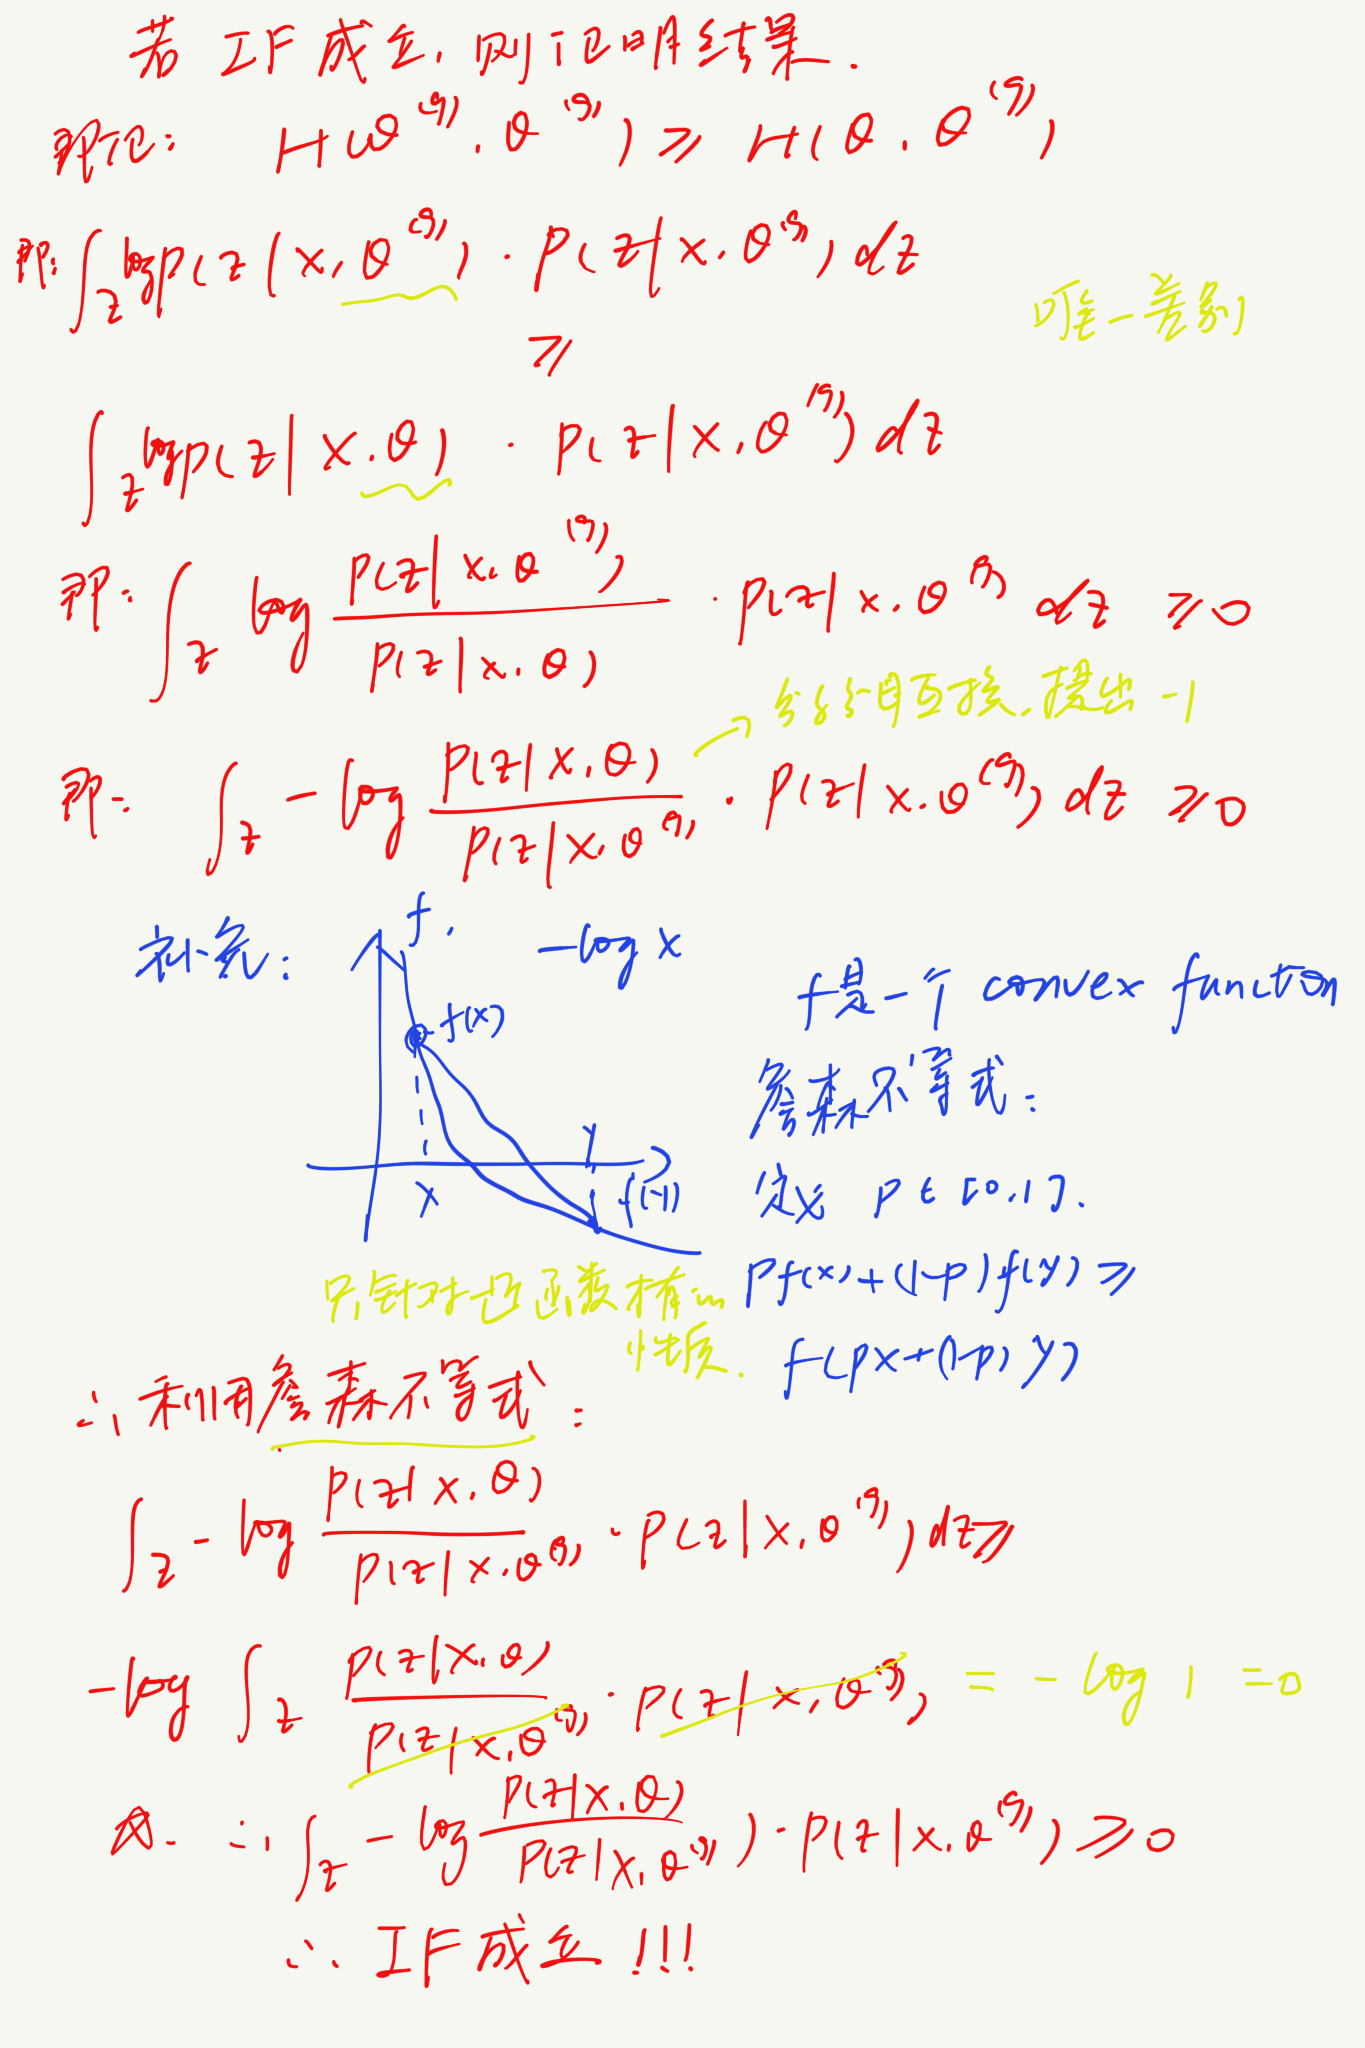 若 IF 成立, 则证明结果.
即证: H(θ⁽ᵍ⁾, θ⁽ᵍ⁾) ≥ H(θ, θ⁽ᵍ⁾)
即: ∫_z log p(z|x, θ⁽ᵍ⁾) · P(z|x, θ⁽ᵍ⁾) dz
唯一差别
≥
∫_z log p(z|x, θ) · P(z|x, θ⁽ᵍ⁾) dz
即: ∫_z log P(z|x, θ⁽ᵍ⁾) / P(z|x, θ) · P(z|x, θ⁽ᵍ⁾ dz ≥ 0
→ 分母互换, 提出 -1
即: ∫_z - log P(z|x, θ) / P(z|x, θ⁽ᵍ⁾) · P(z|x, θ⁽ᵍ⁾) dz ≥ 0
补充:
f.
-log x
f是一个 convex function
f(x)
詹森不等式:
y
x
f(y)
定义 p ∈ [0,1].
只针对凸函数有的
性质.
Pf(x)+(1-p)f(y) ≥
f(px+(1-p)y)
∴ 利用詹森不等式:
∫_z - log P(z|x, θ) / P(z|x, θ⁽ᵍ⁾) · P(z|x, θ⁽ᵍ⁾) dz ≥
-log ∫_z P(z|x, θ) / P(z|x, θ⁽ᵍ⁾) · P(z|x, θ⁽ᵍ⁾) = -log 1 = 0
∴ ∫_z - log P(z|x, θ) / P(z|x, θ⁽ᵍ⁾) ) · P(z|x, θ⁽ᵍ⁾) ≥ 0
∴ IF成立!!!